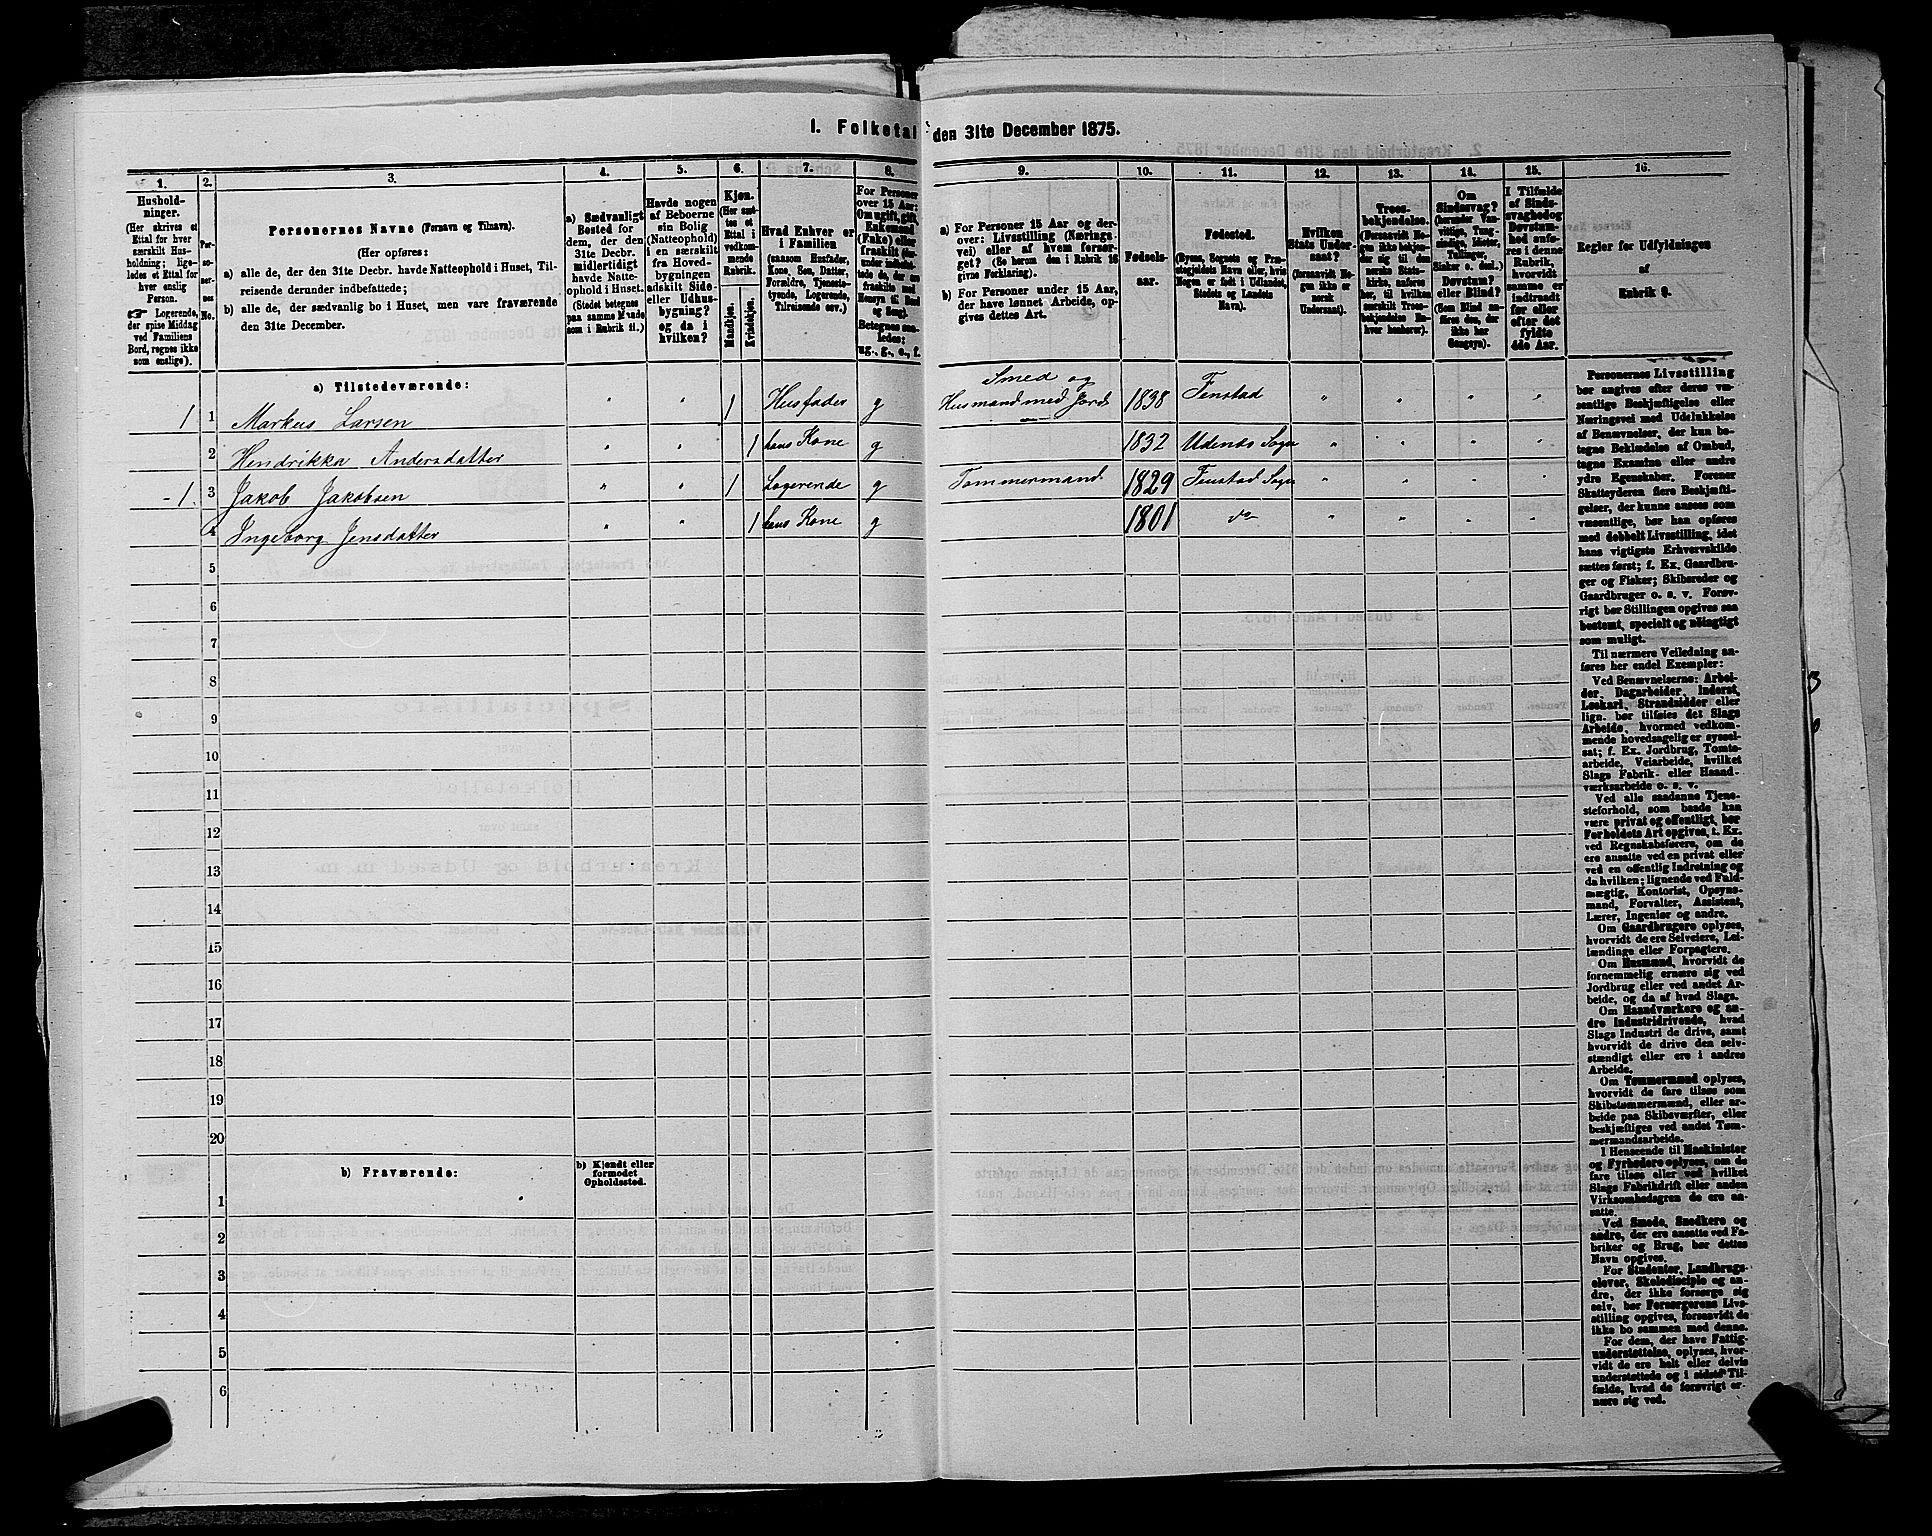 1. Folketal den 31te December 1875.
1. 2. 3. 4. 5. 6. 7. 8. 9. 10. 11. 12. 13. 14. 15. 16.
Husholdninger.
(Her skrives et
Ettal for hver
særskilt Husholdning;
ligeledes et Ettal for
hver enslig
Person.
☞ Logerende,
der spise Middag
ved Familiens
Bord, regnes ikke
som enslige).
Personernes No.
Personernes Navne (Fornavn og Tilnavn).
(Her opføres:
a) alle de, der den 31te Decbr. havde Natteophold i Huset, Tilreisende derunder indbefattede;
b) alle de, der sædvanlig bo i Huset, men vare fraværende
den 31te December.
a) Sædvanligt
Bosted for
dem, der den
31te Decbr.
midlertidigt
havde Natteophold i Huset.
(Stedet betegnes
paa samme Maade
som i Rubrik 11.)
Havde nogen
af Beboerne
sin Bolig
(Natteophold)
i en særskilt
fra Hovedbygningen
adskilt Side-
eller Udhusbygning?
og da i
hvilken?
Kjøn.
(Her sættes et
Ettal i
vedkommende
Rubrik.
Mandkjøn.
Kvindekjøn.
Hvad Enhver er
i Familien
(saasom Husfader,
Kone, Søn, Datter,
Forældre, Tjenestetyende, Logerende,
Tilreisende osv.)
For Personer
over 15 Aar:
Om ugift, gift,
Enkemand
(Enke) eller
fraskilt
Betegnes saaledes:
ug., g., e., f.
a) For Personer 15 Aar og derover: Livsstilling (Næringsvei) eller af hvem forsørget? (Se herom den i Rubrik 16
givne Forklaring).
b) For Personer under 15 Aar,
der have lønnet Arbeide, opgives dettes Art.
Fødselsaar.
Fødested.
(Byens, Sognets og Præstegjeldets Navn eller, hvis
Nogen er født i Udlandet,
Stedets og Landets
Navn).
Hvilken
Stats Undersaat?
(forsaavidt Nogen ikke er
norsk
Undersaat).
Troesbekjendelse.
(Forsaavidt Nogen ikke bekjender sig til den
norske Statskirke, anføres
her, til hvilken
særskilt Troesbekjendelse Enhver henhører).
Om
Sindssvag?
(herunder Vanvittige, Tungsindige, Idioter,
Tullinger,
Sinker o. desl.)
Døvstum?
eller Blind?
(Som Blind anføres den, der
ikke har
Gangsyn).
I Tilfælde
af Sindssvaghed og
Døvstumhed anføres i denne
Rubrik,
hvorvidt
samme er
indtraadt
før eller
efter det
fyldte
4de Aar.
Regler for Udfyldningen
af
Rubrik 9.
a) Tilstedeværende:
1 1 Markus Larsen " " 1 Husfader g Smed og
Husmand med Jord 1838 Fenstad " " " "
2 Hendrikka Andersdatter " " 1 hans Kone g 1832 Udenæs Sogn " " " "
1 3 Jakob Jakobsen " " 1 Logerende g Tømmermand 1829 Fenstad Sogn " " " "
4 Ingeborg Jensdatter " " 1 hans Kone g 1801 do " " " "
5
6
7
8
9
10
11
12
13
14
15
16
17
18
19
20
b) Fraværende:
b) Kjendt eller
formodet
Opholdssted.
1
2
3
4
5
6
Personernes Livsstilling
bør angives efter deres væsentlige Beskjæftigelse eller
Næringsvei med Udelukkelse
af Benævnelser, der kun betegne Bekledelse af Ombud,
tagne Examina eller andre
ydre Egenskaber. Forener
Skatteyderen flere Beskjæftigelser, der kunne ansees som
væsentlige, bør han opføres
med dobbelt Livsstilling, idet
hans vigtigste Erhvervskilde
sættes først; f. Ex. Gaardbruger og Fisker; Skibsreder og
Gaardbruger o. s. v. Forøvrigt bør Stillingen opgives saa
bestemt, specielt og nøiagtigt
som muligt.
Til nærmere Veiledning anføres her endel Exempler:
Ved Benævnelserne: Arbeider, Dagarbeider, Inderst,
Løskarl, Strandsidder eller
lign. bør tilføies det Slags
Arbeide, hvormed vedkommende hovedsagelig er sysselsat; f. Ex. Jordbrug, Tomtearbeide, Veiarbeide, hvilket
Slags Fabrik- eller Haandværksarbeide o. s. v.
Ved alle saadanne Tjenesteforhold, som baade kan
være privat og offentligt, bør
Forholdets Art opgives, t. Ex.
ved Regnskabsførere, om de
ere ansatte ved en privat eller
ved en offentlig Indretning og
da hvilken; lignende ved Fuldmægtig, Kontorist, Opsynsmand, Forvalter, Assistent,
Lærer, Ingeniør og andre.
Om Gaardbrugere oplyses,
hvorvidt de ere Selveiere, Leilændinge eller Forpagtere.
Om Husmænd, hvorvidt de
fornemmelig ernære sig ved
Jordbrug eller ved andet Arbeide, og da af hvad Slags.
Om Haandværkere og andre Industridrivende, hvad
Slags Industri de drive, samt
hvorvidt de drive den selvstændigt eller ere i andres
Arbeide.
Om Tømmermænd oplyses,
hvorvidt de fare tilsøs som
Skibstømmermænd, eller arbeide paa Skibsværfter, eller
beskjæftiges ved andet Tømmermandsarbeide.
I Henseende til Maskinister
og Fyrbødere oplyses, om de
fare tilsøs eller ved hvilket
Slags Fabrikdrift eller anden
Virksomhedsgren de ere ansatte.
Ved Smede, Snedkere og
andre, der ere ansatte ved Fabriker og Brug, bør dettes
Navn opgives.
For Studenter, Landbrugselever, Skoledisciple og andre, der ikke forsørge sig
selv, bør Forsørgerens Livsstilling opgives, forsaavidt de
ikke bo sammen med denne.
For dem, der have Fattigunderstøttelse, oplyses, hvorvidt de ere helt eller delvis
understøttede og i sidste Tilfælde, hvad de forøvrigt ernære sig ved.